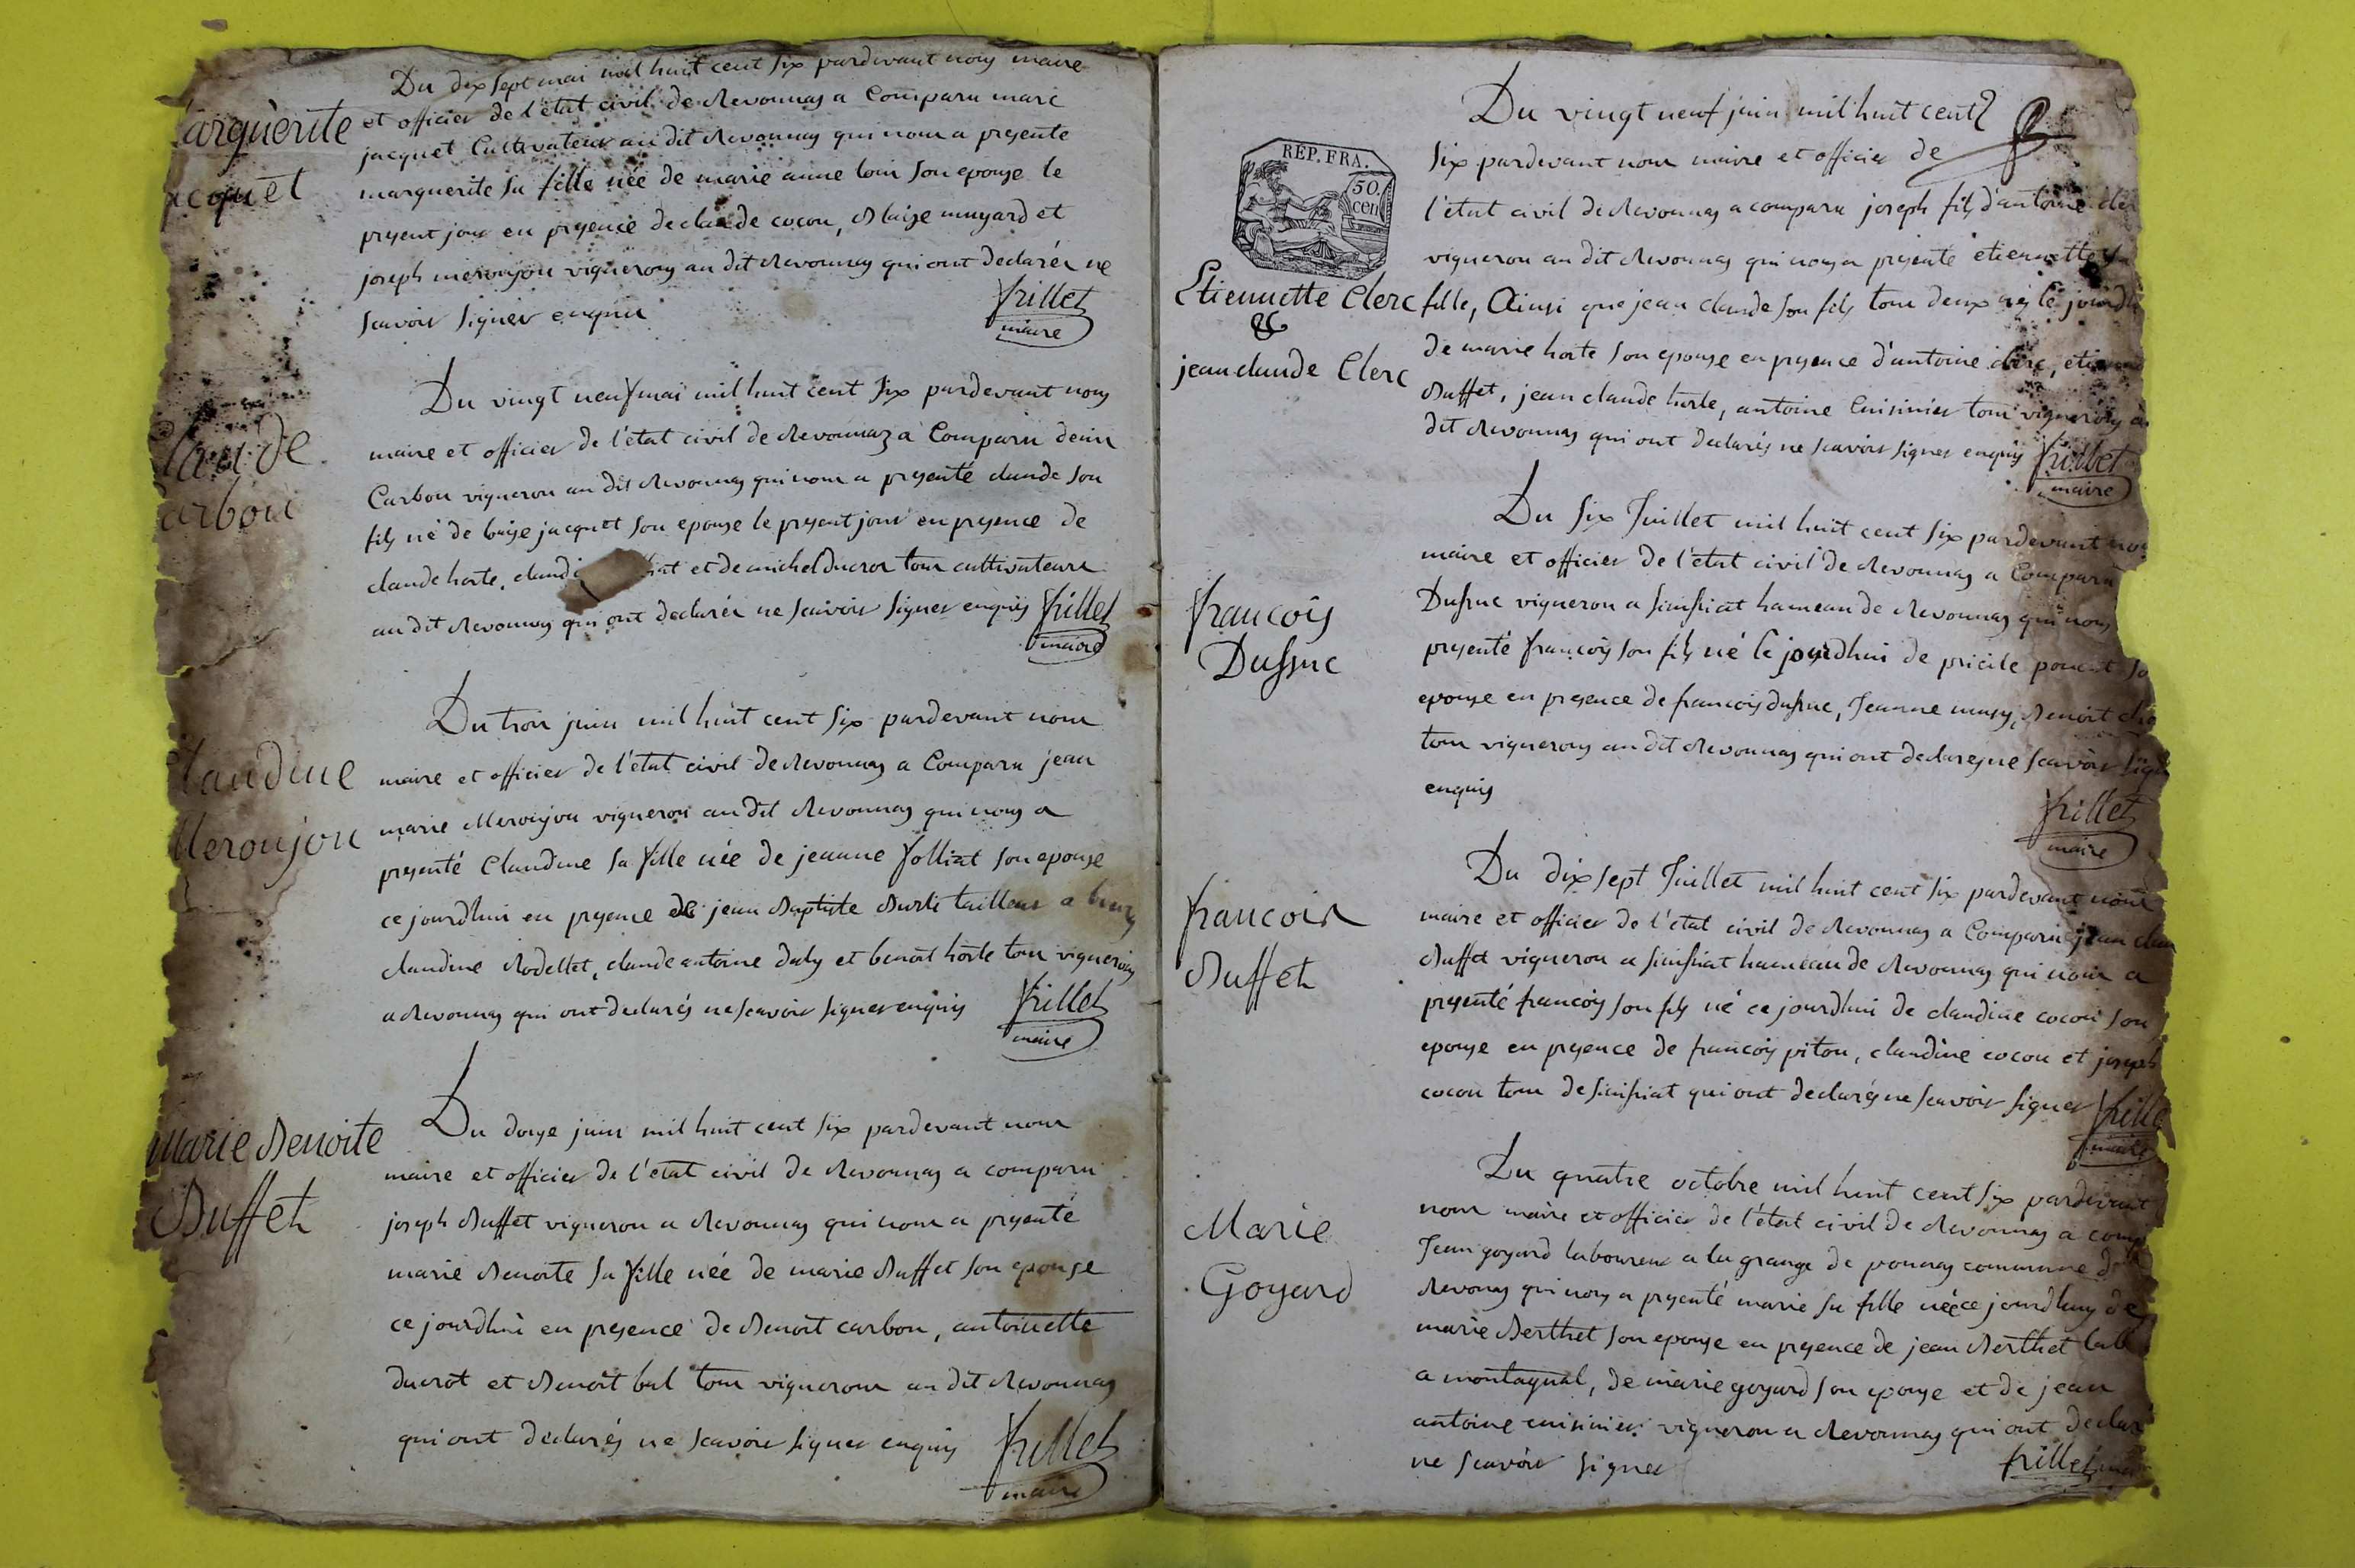 Du dix sept mai mil huit cent six pardevant nous maire
arguerite
et officier de l'état civil de Revonnas a Comparu marc
jacquet Cultivateur au dit Revonnas qui nous a presenté
acquet
marguerite sa fille née de marie anne loui son epouse le
present jour en presence de claude cocon, Blaize muyard et
joseph meroujou vignerons au dit Revonnas qui ont declarés ne
scavoir signer enquis
frillet
maire
Du vingt neuf mai mil huit cent six pardevant nous
Claude
arbon
maire et officier de l'état civil de Revonnaz a Comparu denis
Carbon vigneron au dit Revonnas qui nous a presenté claude son
fils né de louise jacquet son epouse le present jour en presence de
claude horte, et de michel Ducrot tous cultivateurs
au dit Revonnas qui ont declarés ne scavoir signer enquis frillet
maire
Du trois juin mil huit cent six pardevant nous
laudine
Meroujou
maire et officier de l'état civil de Revonnas a Comparu jean
marie Meroujou vigneron au dit Revonnas qui nous a
presenté Claudine sa fille née de jeanne folliat son epouse
ce jourdhui en presence de jean Baptiste Burlt tailleur a
claudine Rodellet, claude antoine daly et benoit horte tous vignerons
a Revonnas qui ont declarés ne scavoir signer enquis frillet
maire
Du douze juin mil huit cent six pardevant nous
Marie Benoite
Buffet
maire et officier de l'état civil de Revonnas a comparu
joseph Buffet vigneron a Revonnas qui nous a presenté
marie Benoite sa fille née de marie Buffet son epouse
ce jourdhui en presence de Benoit carbon, antoinette
ducrot et Benoit bal tous vignerons au dit Revonnas
qui ont declarés ne scavoir signer enquis frillet
maire
Du vingt neuf juin mil huit cent
REP. FRA.
50. cen
six pardevant nous maire et officier de
l'état civil de Revonnas a comparu joseph fils d'antoine
vigneron au dit Revonnas qui nous a presenté etiennette
Etiennette Clerc
&
jean claude Clerc
fille, Ainsi que jean claude son fils tous deux nés le
de marie horte son epouse en presence d'antoine clerc,
Buffet, jean claude horte, antoine Cuisinier tous vignerons
dit Revonnas qui ont declarés ne scavoir signer enquis frillet
maire
Du six Juillet mil huit cent six pardevant
maire et officier de l'état civil de Revonnas a Comparu
francois
Dufsuc
Dufsuc vigneron a simsiat hameau de Revonnas qui nous
presenté francois son fils né le jourdhui de pricile
epouse en presence de francois dufsuc, Jeanne musy, Benoit
tous vignerons au dit Revonnas qui ont declarés ne scavoir
enquis
frillet
maire
Du dix sept Juillet mil huit cent six pardevant nous
francois
Buffet
maire et officier de l'état civil de Revonnas a Comparu jean
Buffet vigneron a simsiat hameau de Revonnas qui nous a
presenté francois son fils né ce jourdhui de claudine cocon son
epouse en presence de francois piton, claudine cocon et joseph
cocon tous de simsiat qui ont declarés ne scavoir signer
maire
Du quatre octobre mil huit cent six pardevant
Marie
Goyard
nous maire et officier de l'état civil de Revonnas a
Jean goyard laboureur a la grange de pounas commune
Revonas qui nous a presenté marie sa fille née ce jourdhuy de
marie Berthet son epouse en presence de jean Berthet
a montagnat, de marie goyard son epouse et de jean
antoine cuisinier vigneron a Revonnas qui ont
ne scavoir signer
frillet